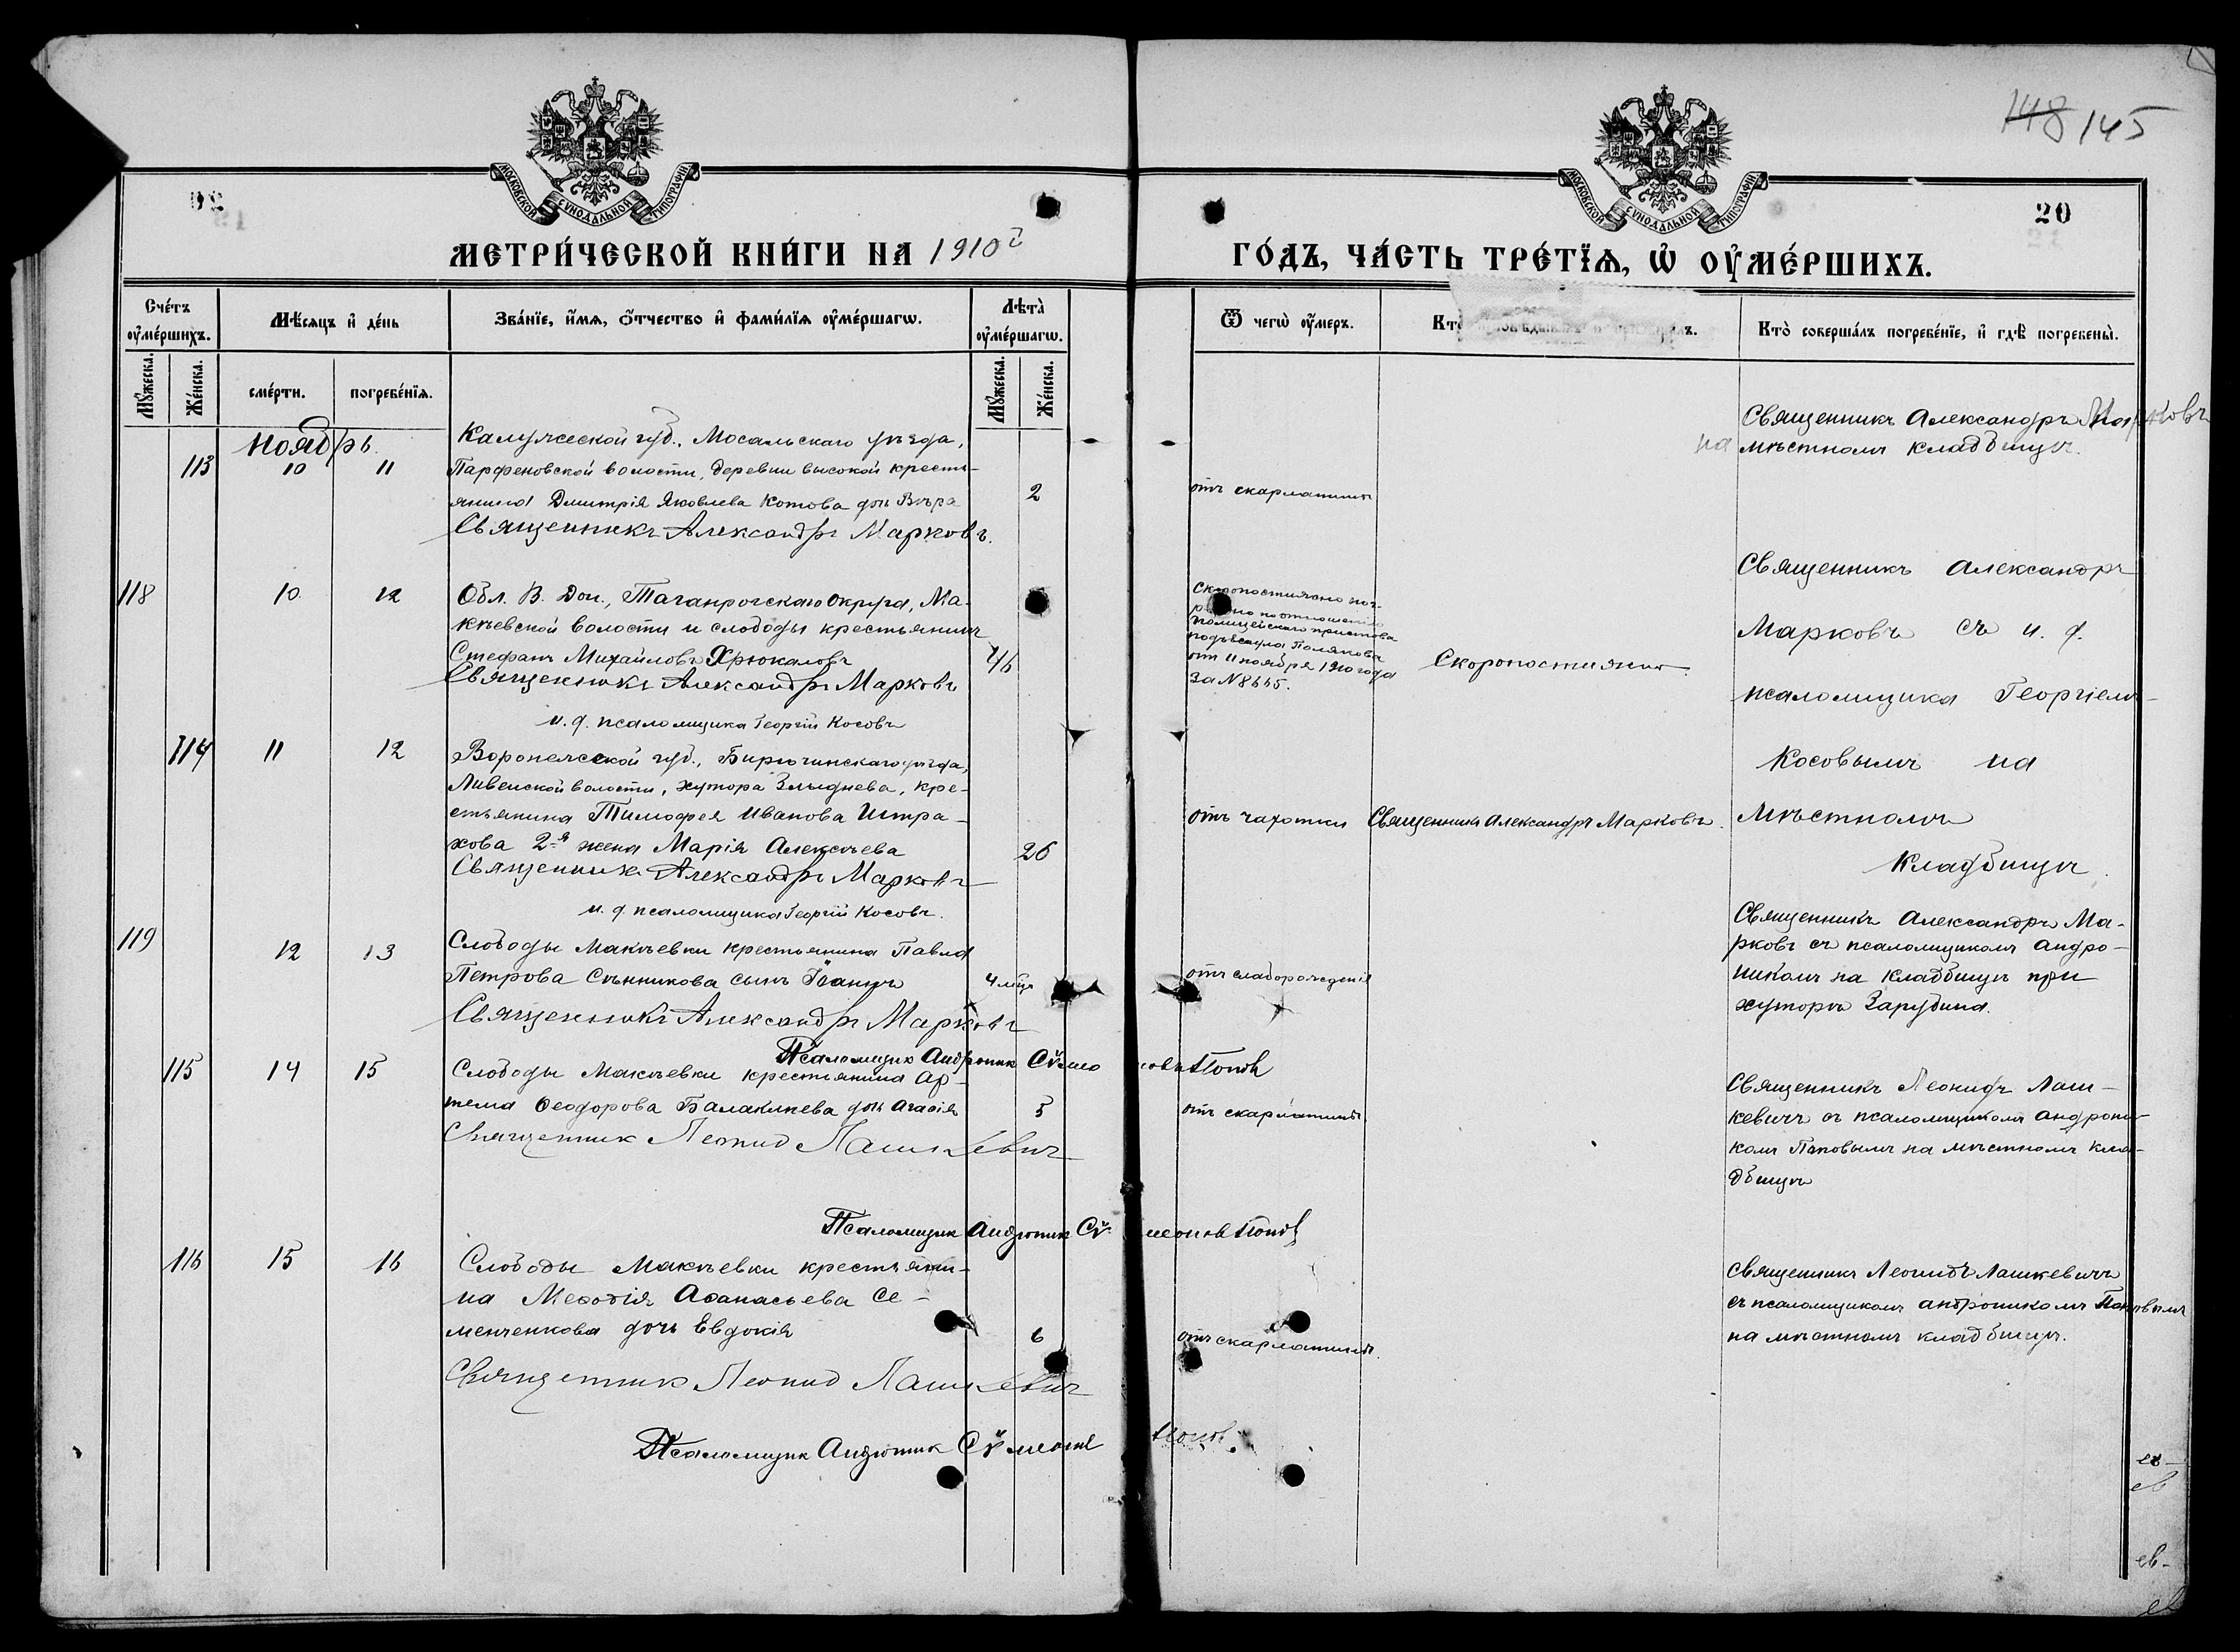 148 145
МОСКОВСКОЙ СУНОДАЛЬНОЙ ТИПОГРАФІИ
МОСКОВСКОЙ СУНОДАЛЬНОЙ ТИПОГРАФІИ
20
МЕТРИ́ЧЕСКОЙ КНИ́ГИ НА 1910й
ГО́ДЪ, ЧА́СТЬ ТРЕ́ТІѦ, Ѡ҆ ОУ҆МЕ́РШИХЪ.
Сче́тъ оу҆ме́ршихъ.
Мꙋ́жеска.
Же́нска.
Мѣ́сяцъ и҆ де́нь
сме́рти.
погребе́нїѧ.
Зва́нїе, и҆́мѧ, ѻ҆́тчество и҆ фами́лїѧ оу҆ме́ршагѡ.
Лѣта̀ оу҆ме́ршагѡ.
Мꙋ́жеска.
Же́нска.
Ѿ чегѡ̀ оу҆́меръ.
Кто̀
Кто̀ соверша́лъ погребе́нїе, и҆ гдѣ̀ погребены̀.
Ноябрь
113 10 11
Калужской губ., Мосальскаго уѣзда,
Парфеновской волости, деревни высокой кресть-
янина Дмитрія Яковлева Котова дочь Вѣра
2
Священникъ Александръ Марковъ.
отъ скарлатины
Священникъ Александръ Марковъ
на мѣстномъ кладбищѣ.
118 10 12
Обл. В. Дон., Таганрогскаго округа, Ма-
кѣевской волости и слободы крестьянинъ
Стефанъ Михайловъ Хрюкаловъ
46
Священникъ Александръ Марковъ
и. д. псаломщика Георгій Косовъ
Скоропостижно
по отношенію
полицейскаго пристава
подъесаула Полякова
отъ 11 ноября 1910 года
за №8645.
Скоропостижно.
Священникъ Александръ
Марковъ съ и. д.
псаломщика Георгіемъ
Косовымъ на
мѣстномъ
кладбищѣ.
114 11 12
Воронежской губ., Бирючинскаго уѣзда,
Ливенской волости, хутора Злыднева, кре-
стьянина Тимофея Иванова Истра-
хова 2-я жена Марія Алексѣева
26
Священникъ Александръ Марковъ
и. д. псаломщика Георгій Косовъ.
отъ чахотки
Священникъ Александръ Марковъ.
119 12 13
Слободы Макѣевки крестьянина Павла
Петрова Сѣнникова сынъ Іоаннъ
4 мѣс
Священникъ Александръ Марковъ
Псаломщик Андроник Сѵмеоновъ Попов
отъ слаборожденія
Священникъ Александръ Ма-
рковъ съ псаломщикомъ Андро-
никомъ на кладбищѣ при
хуторѣ Зарубина.
115 14 15
Слободы Макѣевки крестьянина Ар-
тема Ѳеодорова Балакинева дочь Агаѳія
5
Священник Леонид Лашкевич
Псаломщик Андроник Сѵмеонов Попов
отъ скарлатины
Священникъ Леонидъ Лаш-
кевичъ съ псаломщикомъ Андрони-
комъ Поповымъ на мѣстномъ кла-
дбищѣ
116 15 16
Слободы Макѣевки крестьяни-
на Меѳодія Аѳанасьева Се-
менченкова дочь Евдокія
6
Священник Леонид Лашкевич
Псаломщик Андроник Сѵмеонов Попов.
отъ скарлатины.
Священникъ Леонидъ Лашкевичъ
съ псаломщикомъ Андроникомъ Поповымъ
на мѣстномъ кладбищѣ.